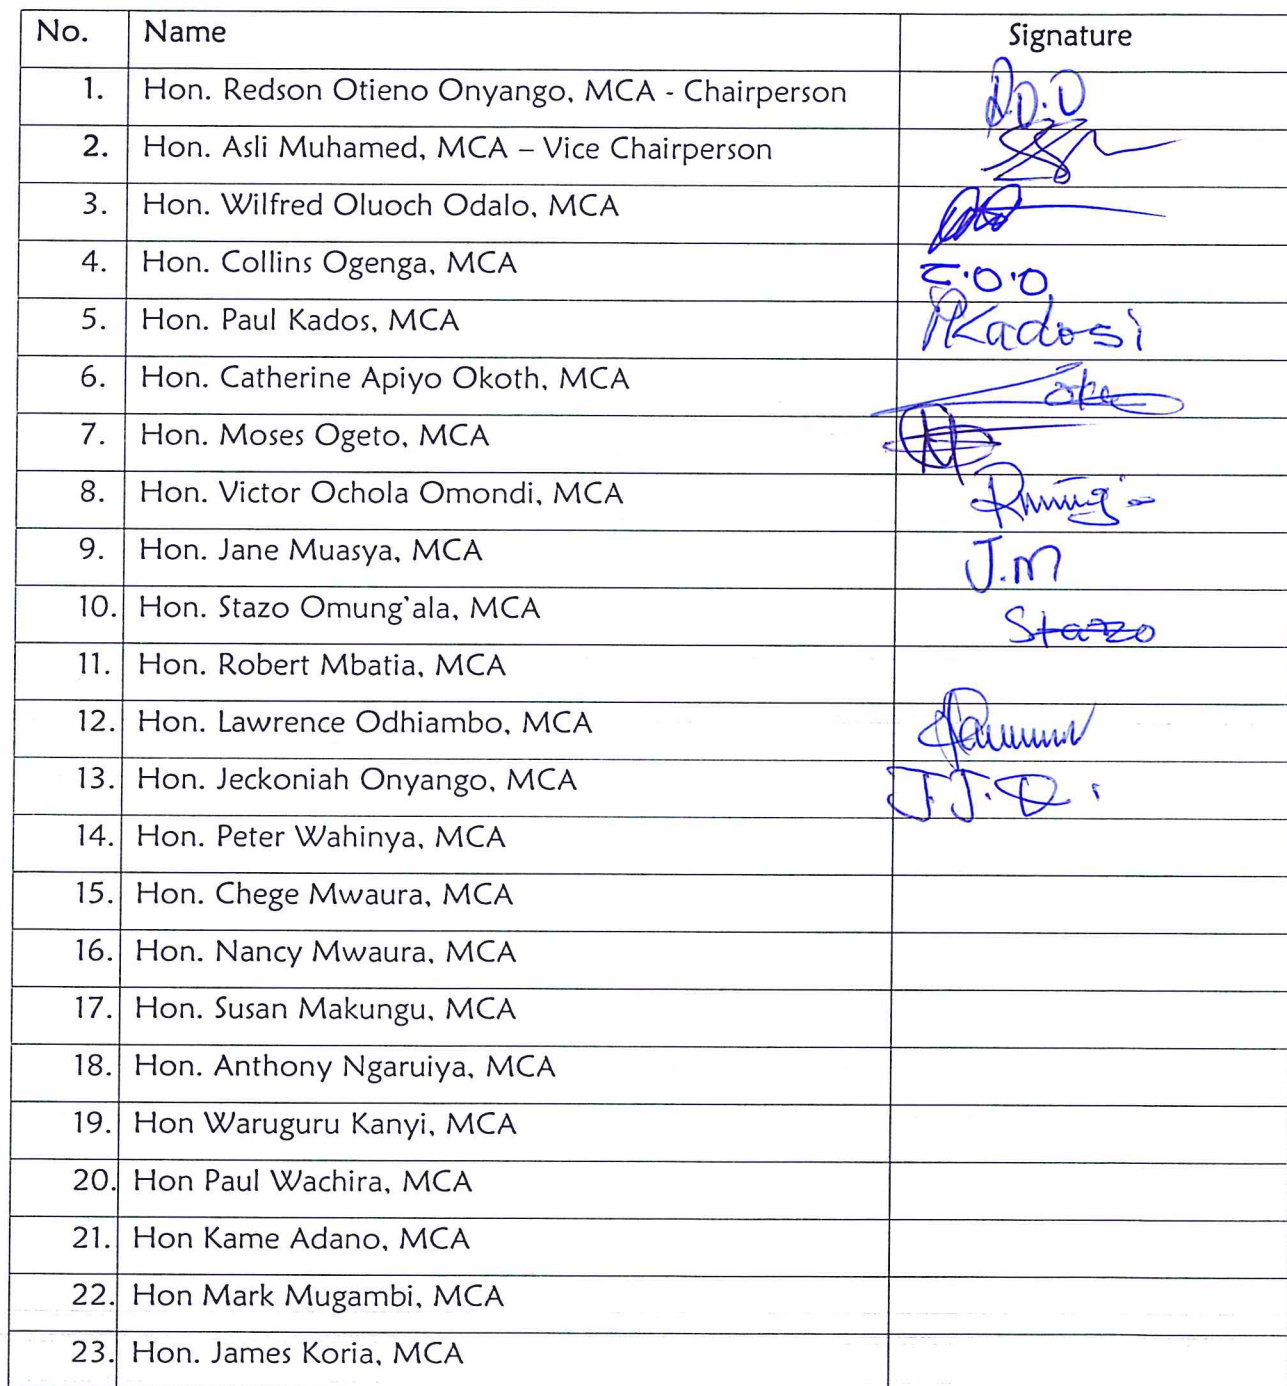 No. Name Signature
1. Hon. Redson Otieno Onyango, MCA - Chairperson
2. Hon. Asli Muhamed, MCA – Vice Chairperson
3. Hon. Wilfred Oluoch Odalo, MCA
4. Hon. Collins Ogenga, MCA C.O.O
5. Hon. Paul Kados, MCA PKadosi
6. Hon. Catherine Apiyo Okoth, MCA
7. Hon. Moses Ogeto, MCA
8. Hon. Victor Ochola Omondi, MCA
9. Hon. Jane Muasya, MCA J.M
10. Hon. Stazo Omung'ala, MCA Stazo
11. Hon. Robert Mbatia, MCA
12. Hon. Lawrence Odhiambo, MCA
13. Hon. Jeckoniah Onyango, MCA
14. Hon. Peter Wahinya, MCA
15. Hon. Chege Mwaura, MCA
16. Hon. Nancy Mwaura, MCA
17. Hon. Susan Makungu, MCA
18. Hon. Anthony Ngaruiya, MCA
19. Hon Waruguru Kanyi, MCA
20. Hon Paul Wachira, MCA
21. Hon Kame Adano, MCA
22. Hon Mark Mugambi, MCA
23. Hon. James Koria, MCA